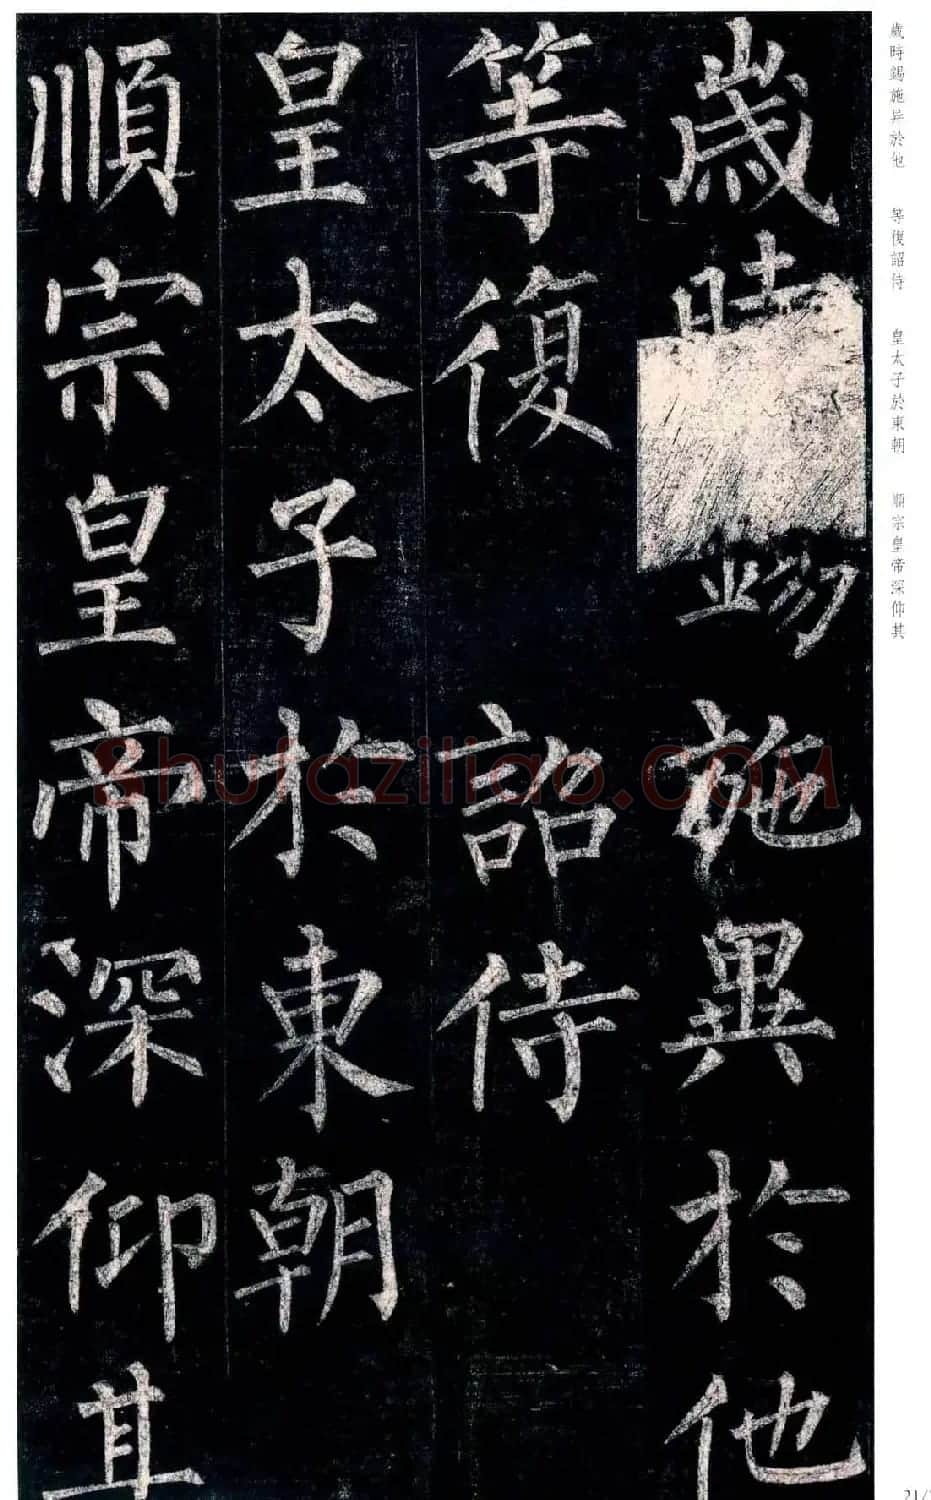 歲時錫施異於他
等復 詔侍
皇太子於東朝
順宗皇帝深仰其
歲時錫施异於他 等復詔侍 皇太子於東朝 順宗皇帝深仰其
Shufaziliao.COM
21/